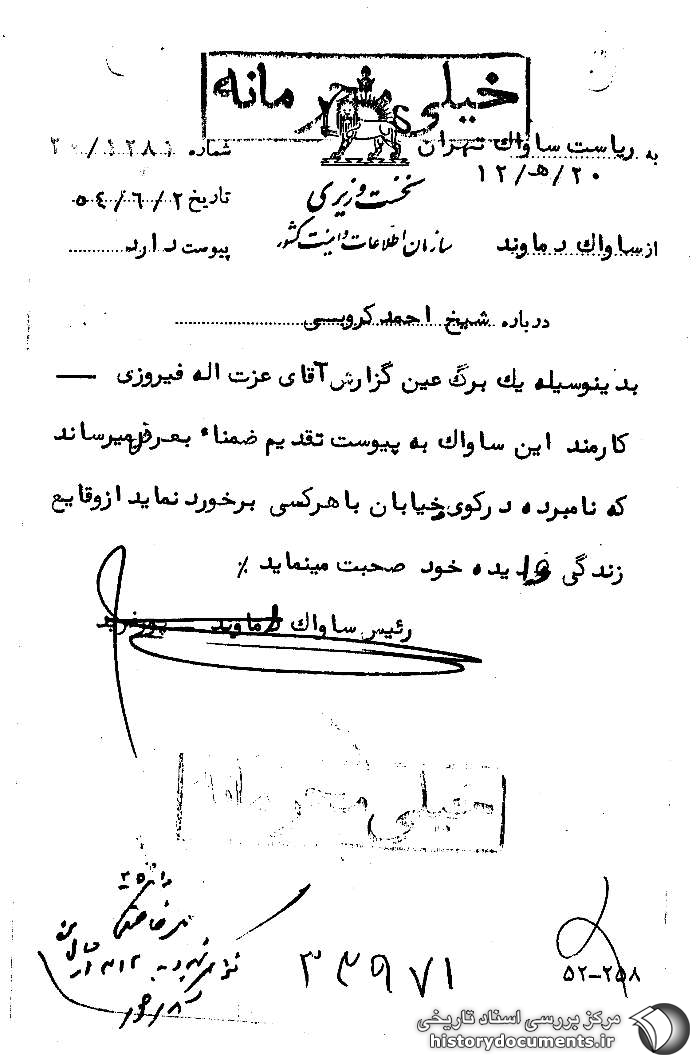 خیلی محرمانه
به ریاست ساواک تهران
۲۰/هـ/۱۲
شماره ۳۰/۱۲۸۱
نخست وزیری
تاریخ ۵۴/۶/۲
از ساواک دماوند
سازمان اطلاعات و امنیت کشور
پیوست دارد
درباره شیخ احمد کرویسی
بدینوسیله یک برگ عین گزارش آقای عزت اله فیروزی
کارمند این ساواک به پیوست تقدیم ضمناء بعرض میرساند
که نامبرده در کوی خیابان با هرکسی برخورد نماید از وقایع
زندگی و ایده خود صحبت مینماید ٪
رئیس ساواک دماوند
خیلی محرمانه
۳۳۹۷۱
۵۲-۲۵۸
مرکز بررسی اسناد تاریخی
historydocuments.ir